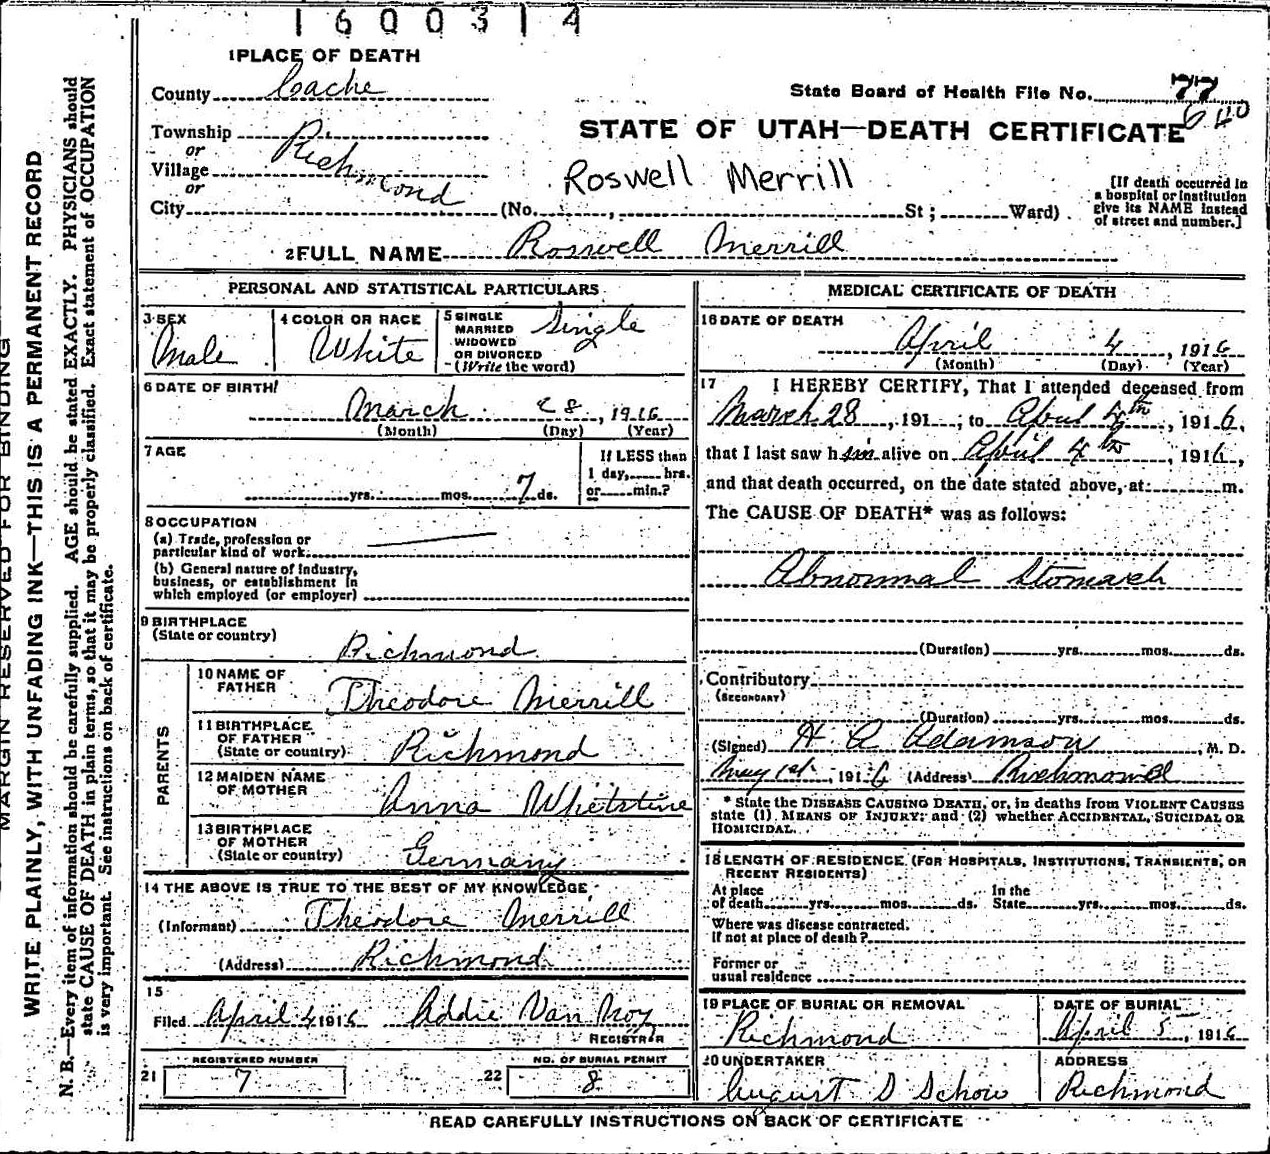 1600314
1PLACE OF DEATH
County Cache
State Board of Health File No. 77
640
STATE OF UTAH—DEATH CERTIFICATE
Township
or
Village Richmond
or
City (No. , St ; Ward)
Roswell Merrill
[If death occurred in
a hospital or institution
give its NAME instead
of street and number.]
2FULL NAME Roswell Merrill
PERSONAL AND STATISTICAL PARTICULARS
3 SEX
Male
4 COLOR OR RACE
White
5 SINGLE
MARRIED
WIDOWED
OR DIVORCED
(Write the word)
Single
6 DATE OF BIRTH
March 28, 1916
(Month) (Day) (Year)
7 AGE
yrs. mos. 7 ds.
If LESS than
1 day, hrs.
or min.?
8 OCCUPATION
(a) Trade, profession or
particular kind of work
(b) General nature of industry,
business, or establishment in
which employed (or employer)
9 BIRTHPLACE
(State or country)
Richmond
PARENTS
10 NAME OF
FATHER
Theodore Merrill
11 BIRTHPLACE
OF FATHER
(State or country)
Richmond
12 MAIDEN NAME
OF MOTHER
Anna Whetstine
13 BIRTHPLACE
OF MOTHER
(State or country)
Germany
14 THE ABOVE IS TRUE TO THE BEST OF MY KNOWLEDGE
(Informant) Theodore Merrill
(Address) Richmond
15
Filed April 4 1916 Addie Van Noy
REGISTRAR
REGISTERED NUMBER
21 7
NO. OF BURIAL PERMIT
22 8
MEDICAL CERTIFICATE OF DEATH
16 DATE OF DEATH
April 4, 1916
(Month) (Day) (Year)
17 I HEREBY CERTIFY, That I attended deceased from
March 28, 191 ; to April 4th, 1916,
that I last saw him alive on April 4th, 1916,
and that death occurred, on the date stated above, at m.
The CAUSE OF DEATH* was as follows:
Abnormal Stomach
(Duration) yrs. mos. ds.
Contributory
(SECONDARY)
(Duration) yrs. mos. ds.
(Signed) H A Adamson, M. D.
May 1st, 1916 (Address) Richmond
* State the DISEASE CAUSING DEATH, or, in deaths from VIOLENT CAUSES
state (1) MEANS OF INJURY; and (2) whether ACCIDENTAL, SUICIDAL OR
HOMICIDAL.
18 LENGTH OF RESIDENCE (FOR HOSPITALS, INSTITUTIONS, TRANSIENTS, OR
RECENT RESIDENTS)
At place
of death yrs. mos. ds.
In the
State yrs. mos. ds.
Where was disease contracted,
If not at place of death?
Former or
usual residence
19 PLACE OF BURIAL OR REMOVAL
Richmond
DATE OF BURIAL
April 5, 1916
20 UNDERTAKER
August S Schow
ADDRESS
Richmond
READ CAREFULLY INSTRUCTIONS ON BACK OF CERTIFICATE
MARGIN RESERVED FOR BINDING
WRITE PLAINLY, WITH UNFADING INK—THIS IS A PERMANENT RECORD
N. B.—Every item of information should be carefully supplied. AGE should be stated EXACTLY. PHYSICIANS should
state CAUSE OF DEATH in plain terms, so that it may be properly classified. Exact statement of OCCUPATION
is very important. See instructions on back of certificate.